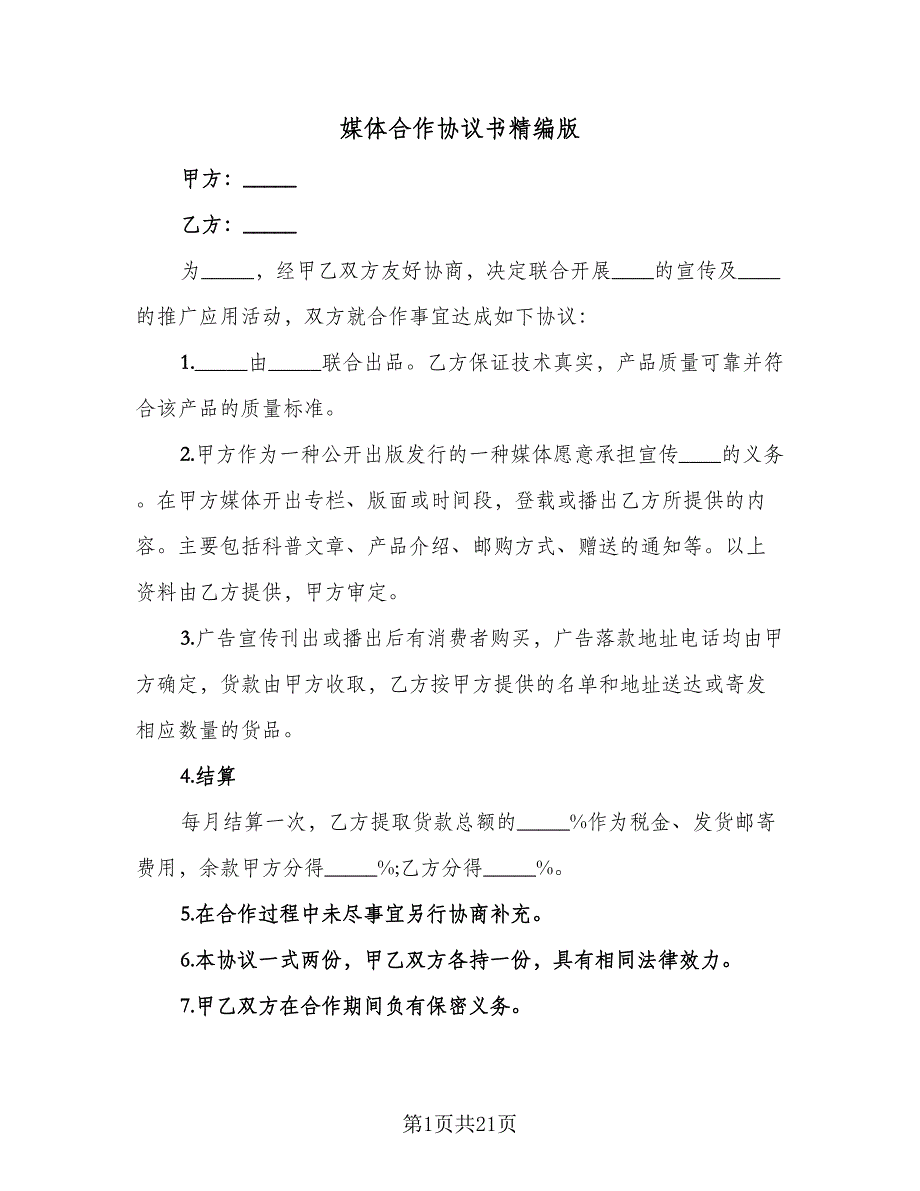 媒体合作协议书精编版
甲方：_____
乙方：_____
为_____，经甲乙双方友好协商，决定联合开展____的宣传及____
的推广应用活动，双方就合作事宜达成如下协议：
1._____由_____联合出品。乙方保证技术真实，产品质量可靠并符
合该产品的质量标准。
2.甲方作为一种公开出版发行的一种媒体愿意承担宣传____的义务
。在甲方媒体开出专栏、版面或时间段，登载或播出乙方所提供的内
容。主要包括科普文章、产品介绍、邮购方式、赠送的通知等。以上
资料由乙方提供，甲方审定。
3.广告宣传刊出或播出后有消费者购买，广告落款地址电话均由甲
方确定，货款由甲方收取，乙方按甲方提供的名单和地址送达或寄发
相应数量的货品。
4.结算
每月结算一次，乙方提取货款总额的_____%作为税金、发货邮寄
费用，余款甲方分得_____%;乙方分得_____%。
5.在合作过程中未尽事宜另行协商补充。
6.本协议一式两份，甲乙双方各持一份，具有相同法律效力。
7.甲乙双方在合作期间负有保密义务。
第1页共21页